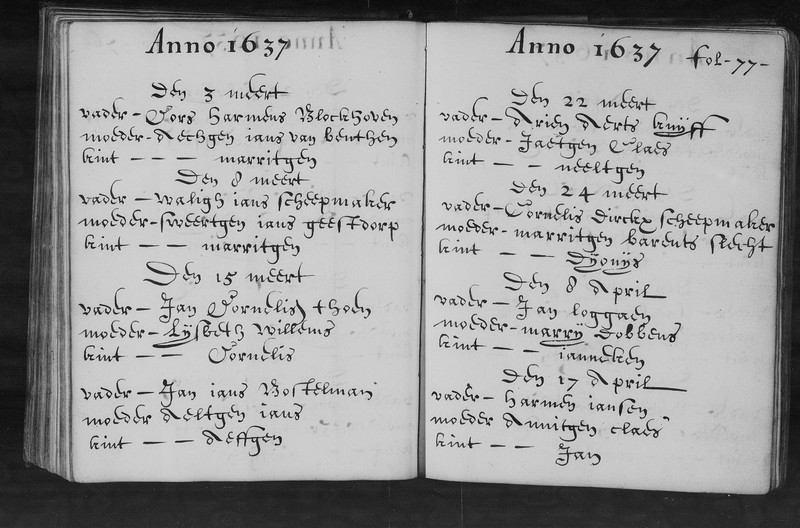 Anno 1637
Den 3 meert
vader - Cors harmens Blockhoven
moeder - Aechgen ians van benthem
kint - - - marritgen
Den 8 meert
vader - waligh ians scheepmaker
moeder - sweertgen ians geestdorp
kint - - marritgen
Den 15 meert
vader - Jan Cornelis thoen
moeder - Lysbeth willems
kint - - Cornelis
vader - Jan ians Bostelman
moeder Aeltgen ians
kint - - - Aeffgen
Anno 1637 fol - 77 -
Den 22 meert
vader - Arien Aerts knyff
moeder - Jaetgen Claes
kint - - neeltgen
Den 24 meert
vader - Cornelis Dirckx scheepmaker
moeder - marritgen barents slecht
kint - - Dyonys
Den 8 April
vader - Jan loggaen
moeder - marry Dobbens
kint - - ianneken
Den 17 April
vader - harmen iansen
moeder Annitgen claes
kint - - Jan